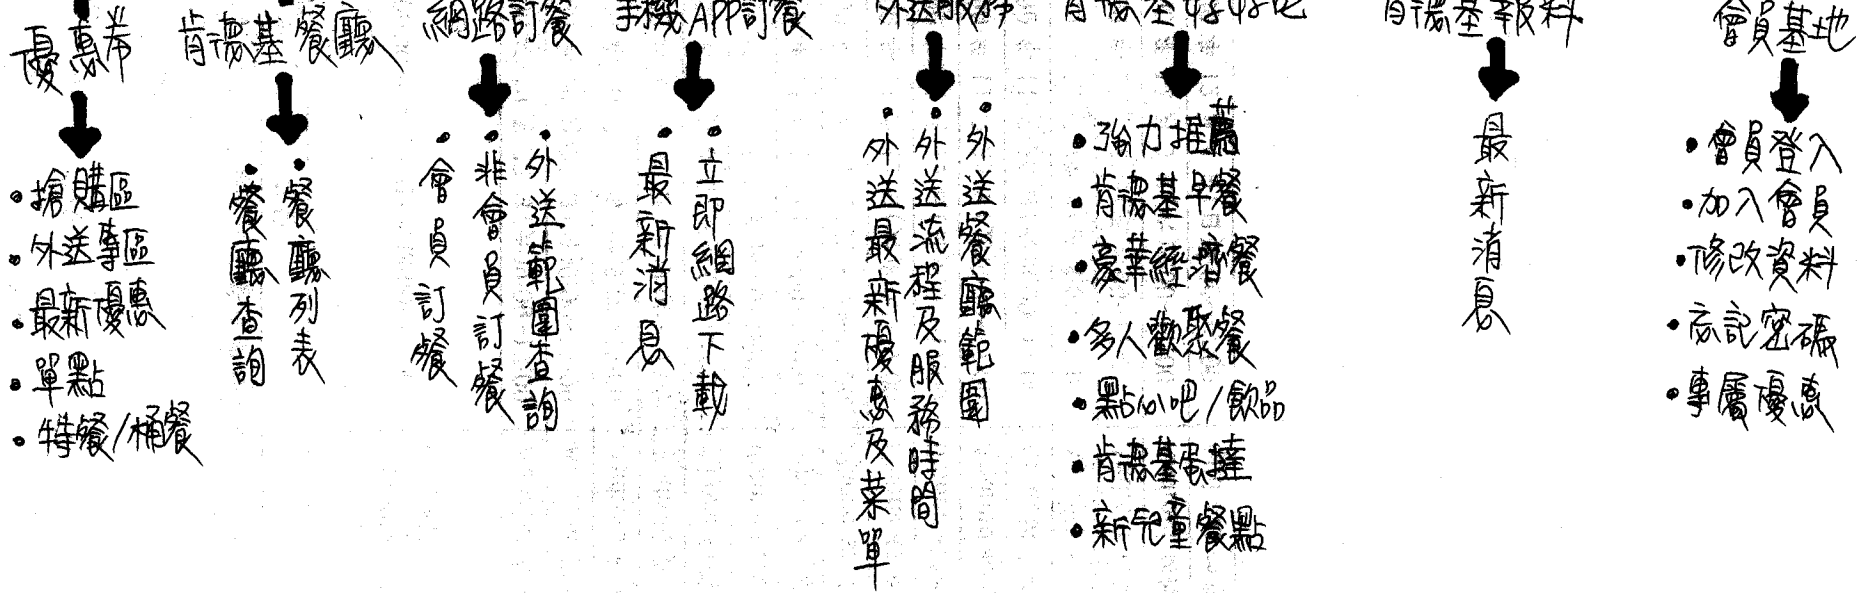 優惠券
搶購區
外送專區
最新優惠
單點
特餐/桶餐
肯德基餐廳
餐廳列表
餐廳查詢
網路訂餐
外送範圍查詢
非會員訂餐
會員訂餐
手機APP訂餐
立即網路下載
最新消息
外送服務
外送餐廳範圍
外送流程及服務時間
外送最新優惠及菜單
肯德基好好吃
強力推薦
肯德基早餐
豪華經濟餐
多人歡聚餐
點心吧/飲品
肯德基蛋撻
新兒童餐點
肯德基報料
最新消息
會員基地
會員登入
加入會員
修改資料
忘記密碼
專屬優惠